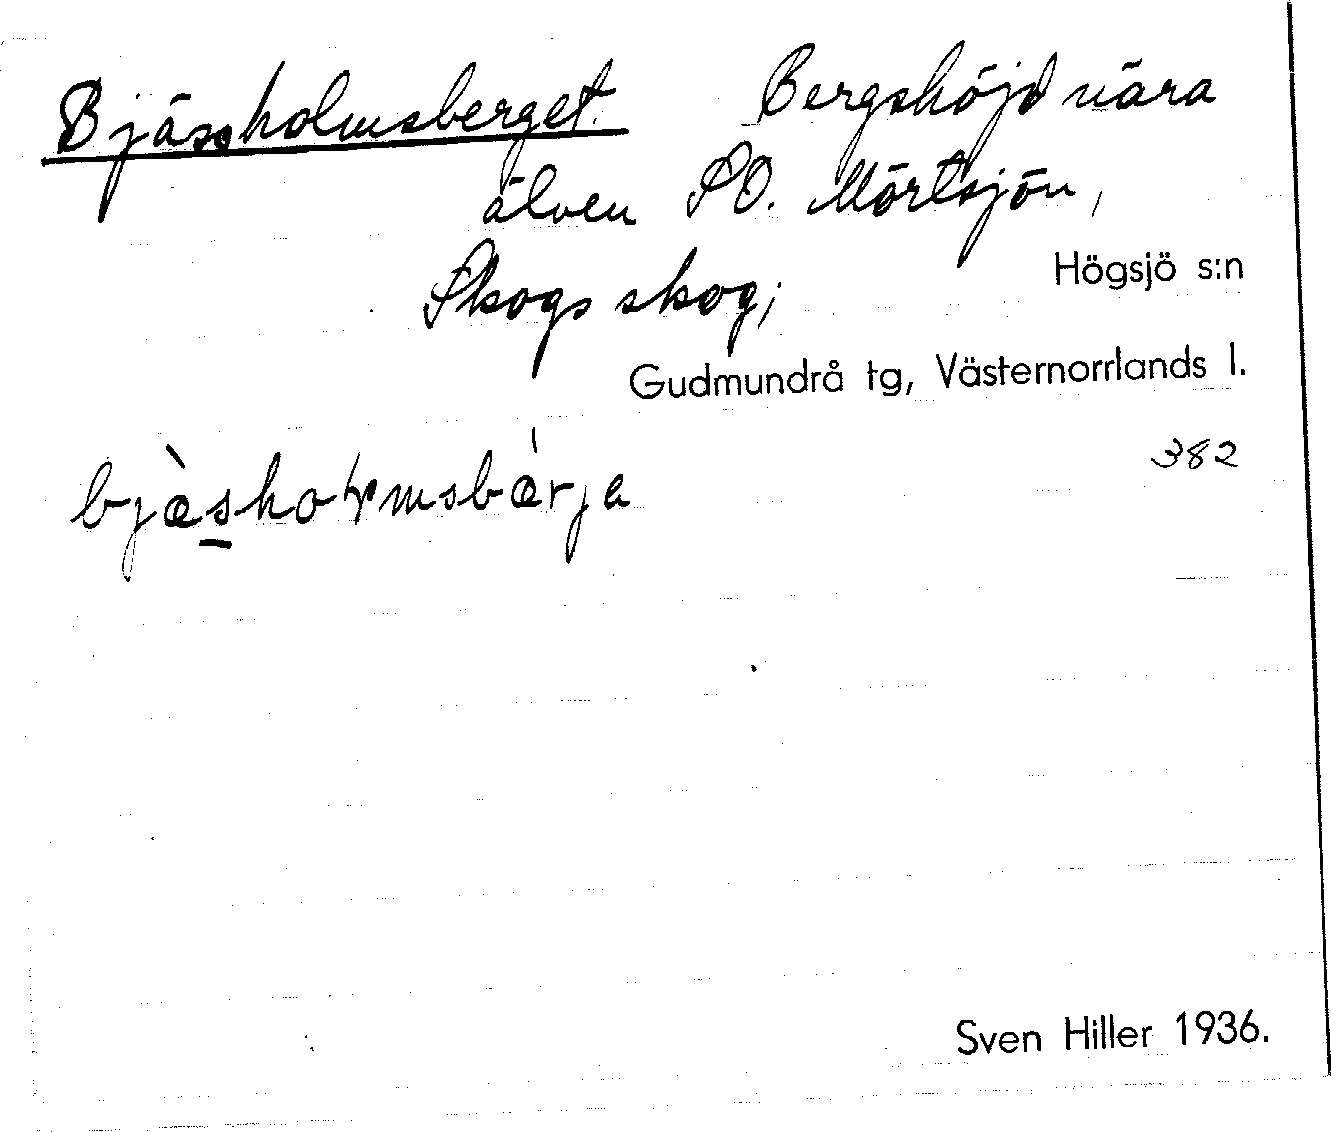 Bjässholmsberget. Bergshöjd nära
älven SO. Mörtsjön,
Skogs skog;
Högsjö s:n
Gudmundrå tg, Västernorrlands l.
382
Sven Hiller 1936.